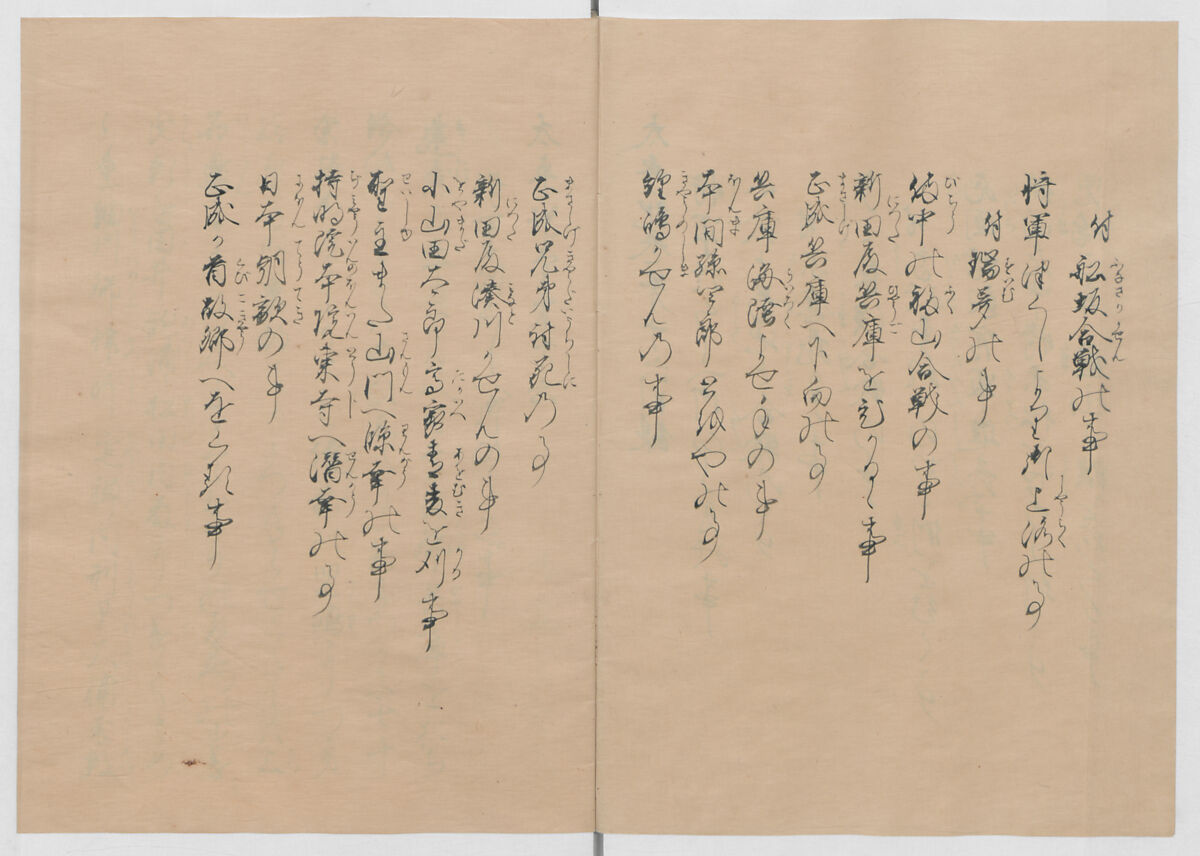 付 船坂合戦の事
将軍つくしより御上洛の事
付 瑞夢の事
備中の福山合戦の事
新田殿兵庫を引かるゝ事
正成兵庫へ下向の事
兵庫海陸よせ手の事
本間孫四郎とを矢の事
経嶋かせんの事
正成兄弟討死の事
新田殿湊川かせんの事
小山田太郎高家青麦を刈事
聖主また山門へ臨幸の事
持明院本院東寺へ潜幸の事
日本朝敵の事
正成か首故郷へをくる事